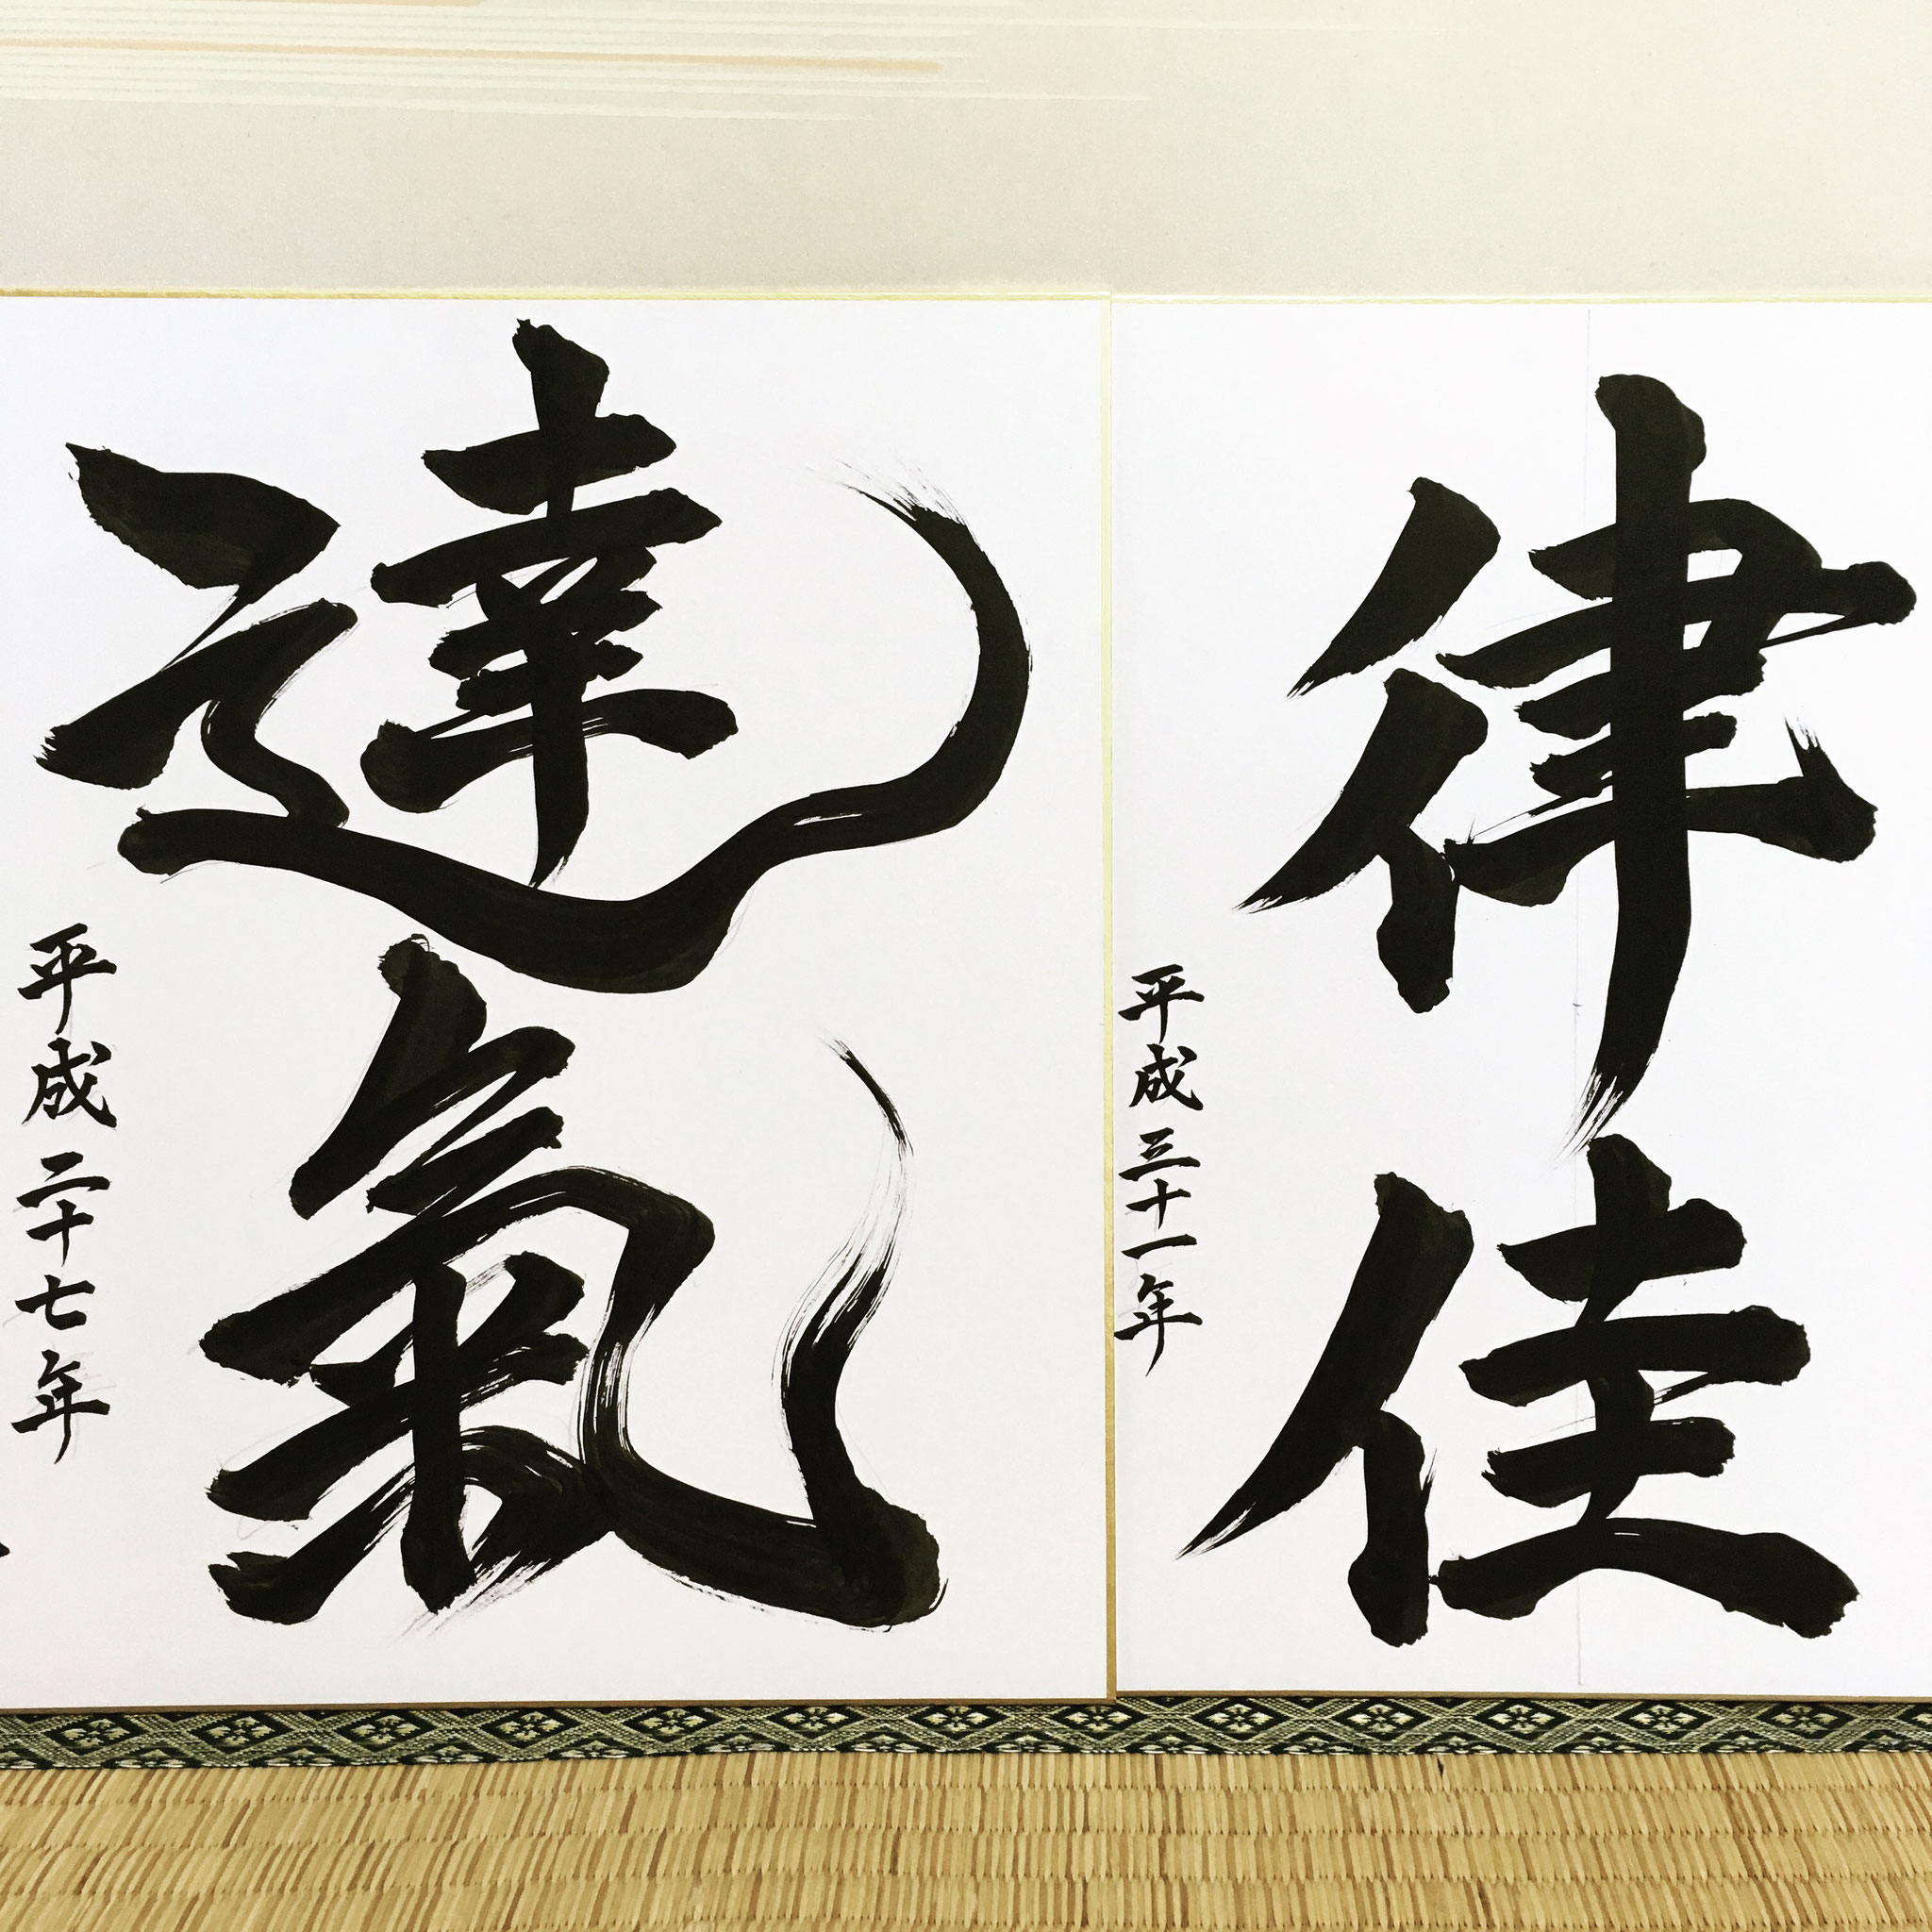 律佳
平成三十一年
達氣
平成二十七年